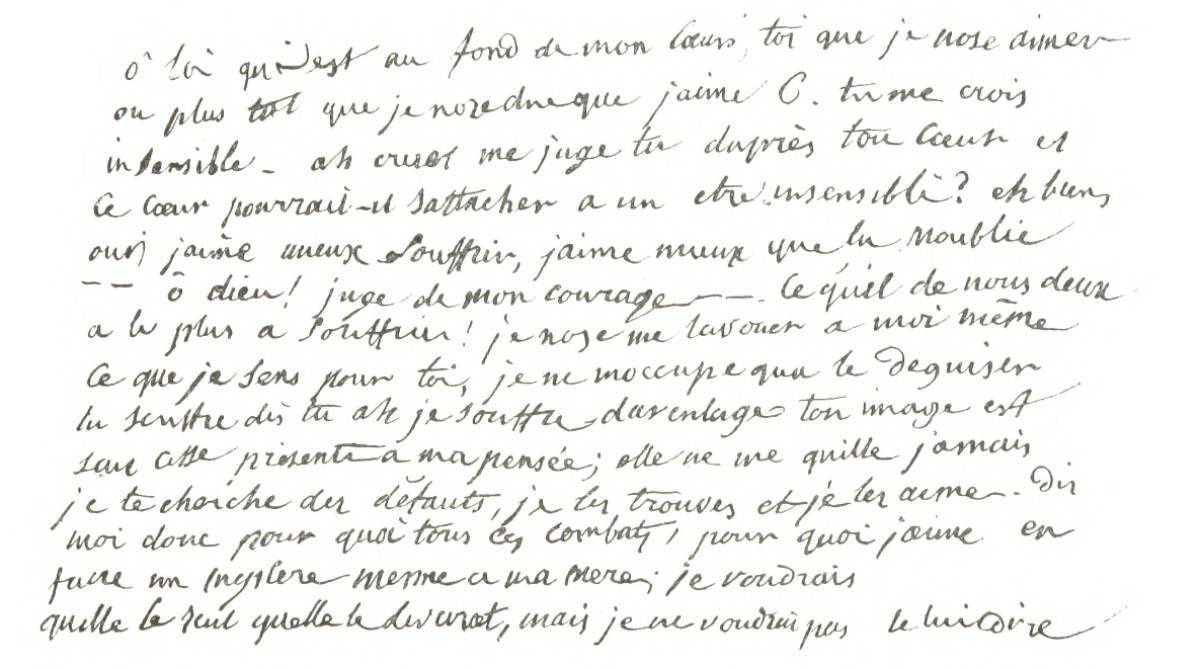 ô toi qui est au fond de mon cœur, toi que je nose aimer
ou plus tot que je nose dire que jaime C. tu me crois
insensible - ah cruel me juge tu daprès ton Cœur et
Ce Cœur pourrait-il sattacher a un etre insensible? eh bien
oui jaime mieux Souffrir, jaime mieux que tu moublie
-- ô dieu! juge de mon courage --- Ce quil de nous deux
a le plus a souffrir! je nose me lavouer a moi même
Ce que je Sens pour toi, je ne moccupe qua le deguiser
tu souffre dis tu ah je souffre daventage ton image est
sans cesse présente a ma pensée; elle ne me quitte jamais
je te cherche des défauts, je les trouves et je les aime. Dis
moi donc pour quoi tous ces combats, pour quoi jaime en
faire un mystere mesme a ma mere; je voudrais
quelle le seut quelle le devinat, mais je ne voudrais pas le lui dire